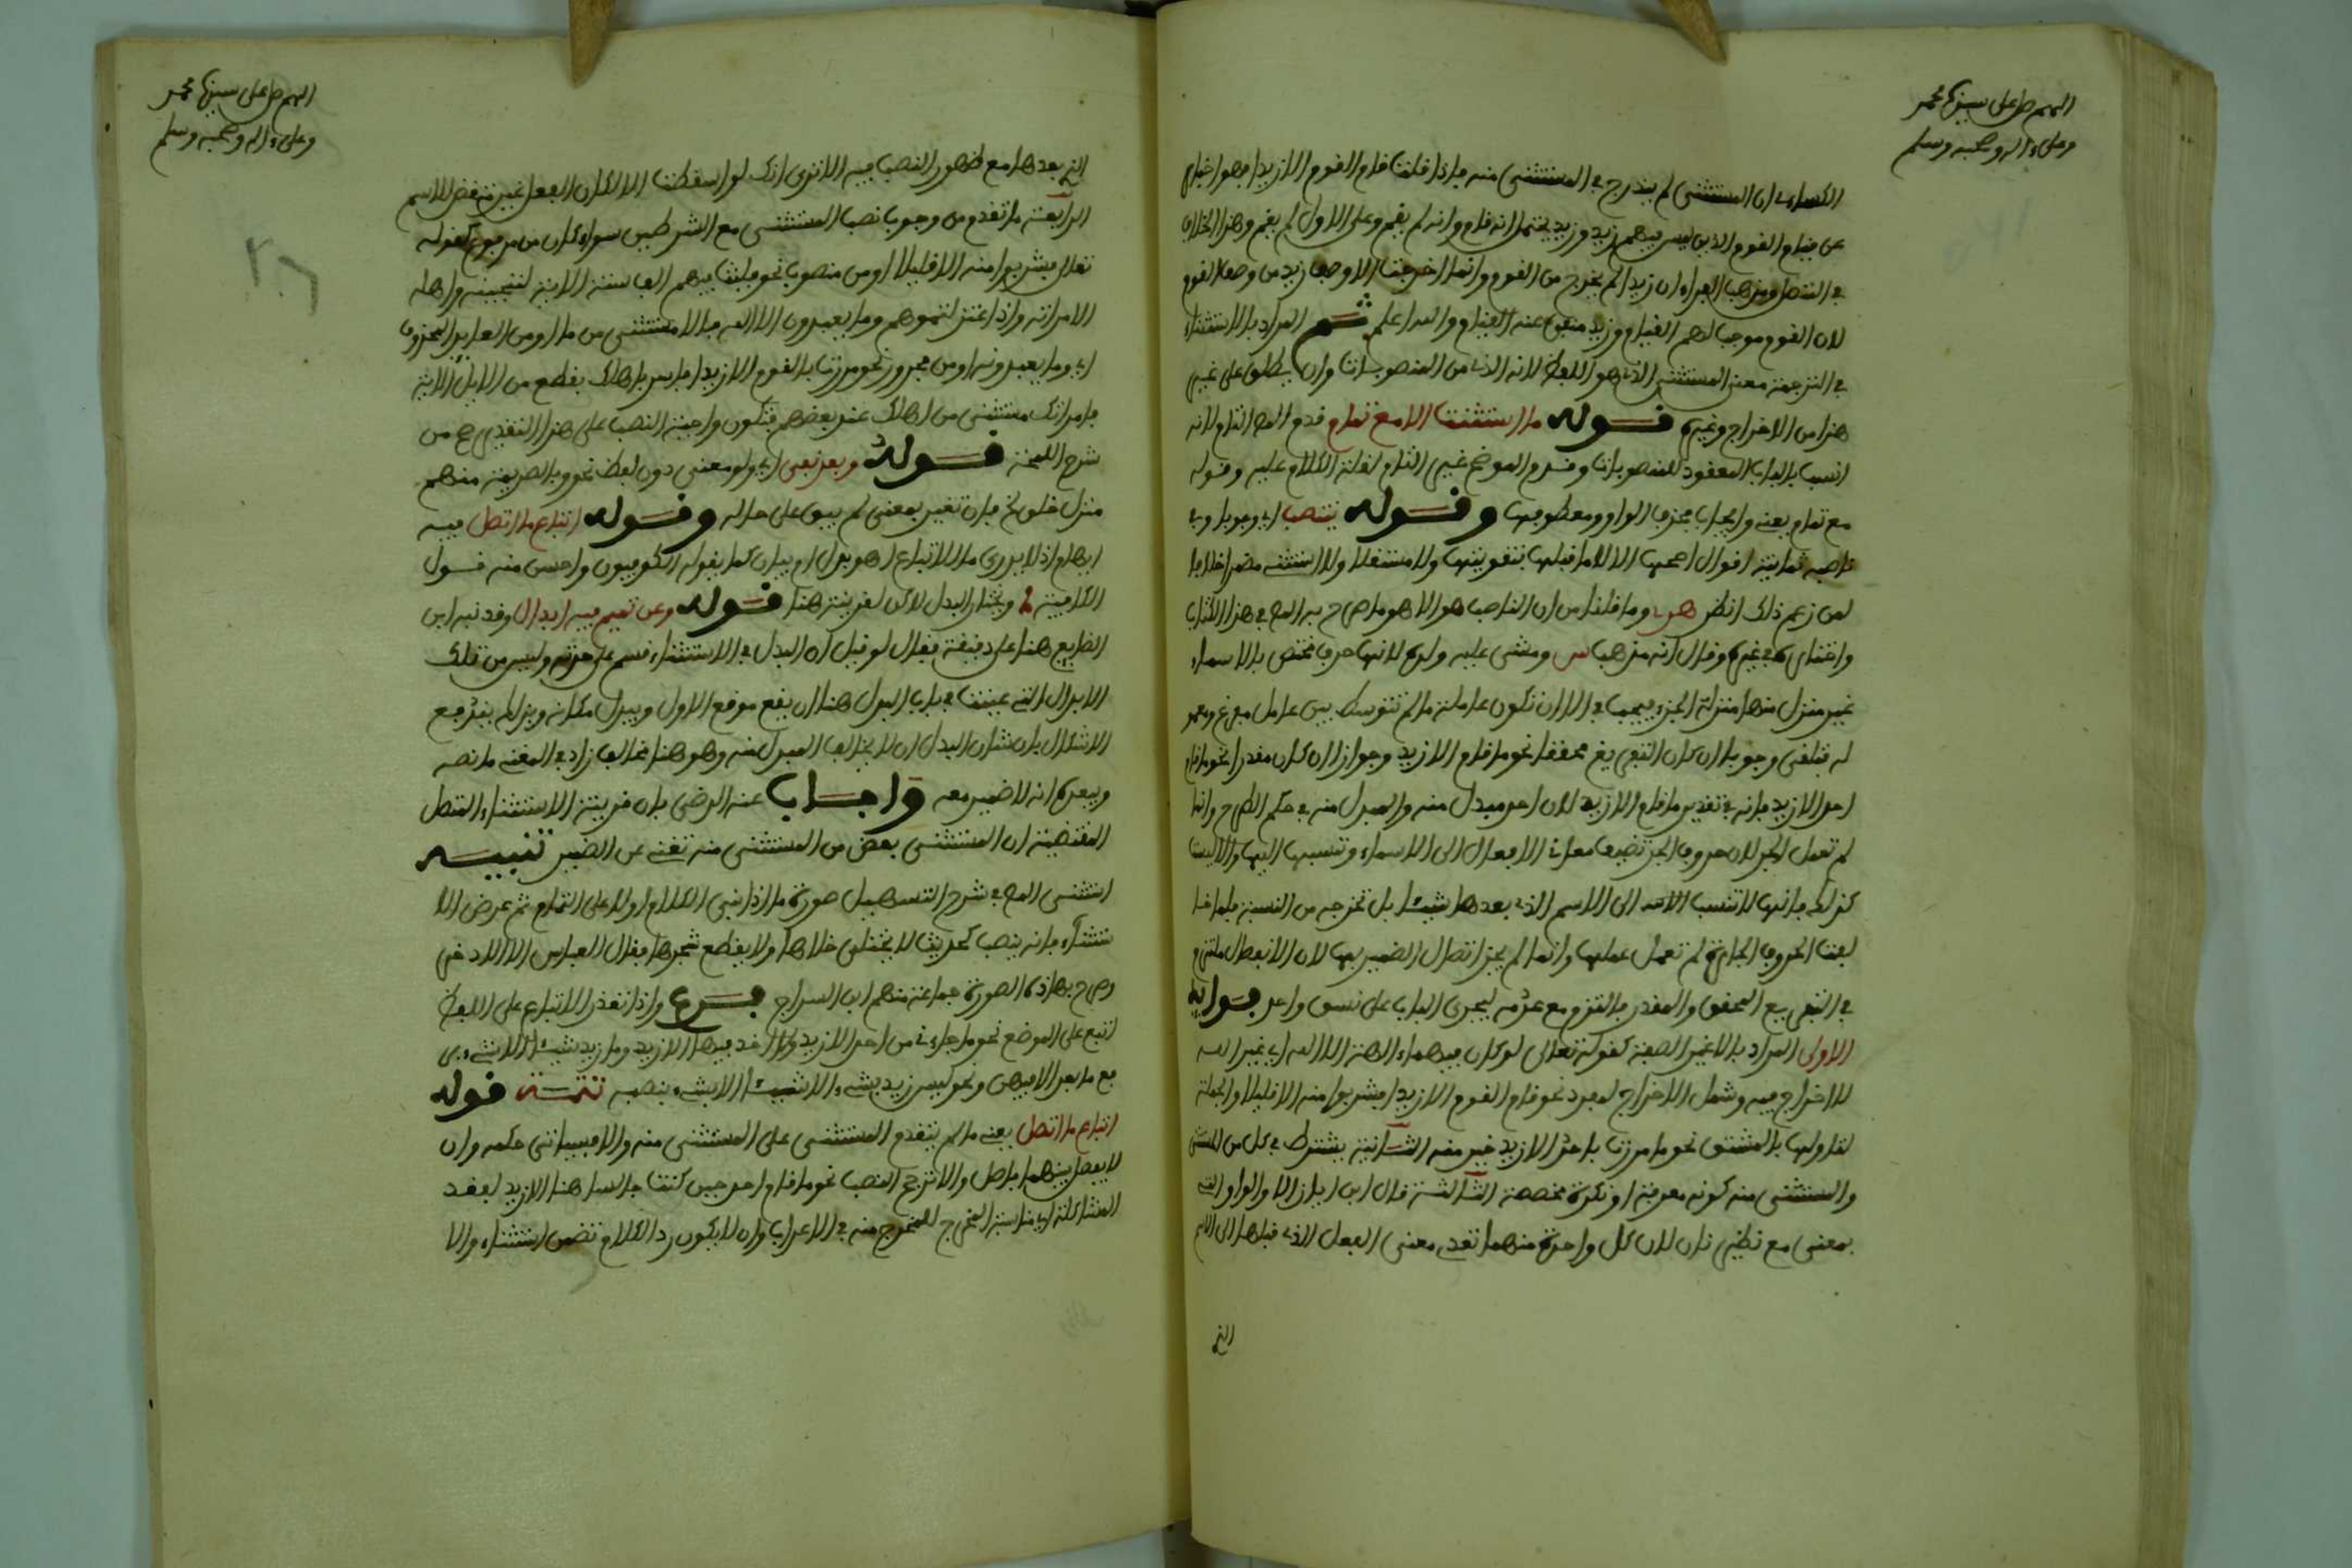 اللهم صل على سيدنا محمد
وعلى ءاله وصحبه وسلم
الكساءي ان المستثنى لم يندرج في المستثنى منه فاذا قلت قام القوم الا زيدا فهو اخبار
عن قيام القوم الذين ليس فيهم زيد وزيد يحتمل انه قام وانه لم يقم وعلى الاول لم يقم وهذا الخلاف
في المتصل ومذهب الفراء ان زيدا لم يخرج من القوم وانما اخرجت الا وصف زيد من وصف القوم
لان القوم موجب لهم القيام وزيد منفي عنه القيام والله اعلم ثم المراد بالاستثناء
في الترجمة معنى المستثنى الذي هو اللفظ لانه الذي من المنصوبات وان يطلق على غير
هذا من الاخراج وغيره قوله ما استثنت الا مع تمام قدم المص التام لانه
انسب بالباب المعقود للمنصوبات وقدم الموضح غير التام لقلة الكلام عليه وقوله
مع تمام يعني وايجاب بحذف الواو ومعطوفها وقوله ينتصب اي وجوبا وفي
ناصبه ثمانية اقوال اصحها الا لا ما قبلها بتقويتها ولا مستقلا ولا استثنى مضمرا خلافا
لمن زعم ذلك انظر وما قلنا من ان الناصب هو الا هو ما صرح به المص في هذا الكتاب
واختاره في غيره وقال انه مذهب س ومشى عليه ولده لانها حرف مختص بالاسماء
غير منزل منها منزلة الجزء فيجب في الا ان تكون عاملة ما لم تتوسط بين عامل مفرغ ومعمو
له فتلغى وجوبا ان كان التفريغ محققا نحو ما قام الا زيد وجوازا ان كان مقدرا نحو ما قام
احد الا زيد فانه في تقدير ما قام الا زيد لان احد مبدل منه والمبدل منه في حكم الطرح وانما
لم تعمل الجر لان حروف الجر تضيف معاني الافعال الى الاسماء وتنسبها اليها والا ليست
كذلك فانها لا تنسب الى الاسم الذي بعدها شيئا بل تخرجه من النسبة فلما خا
لفت الحروف الجارة لم تعمل عملها وانما لم يجز اتصال الضمير بها لان الانفصال ملتزم
في التفريغ المحقق والمقدر فالتزم مع عدمه ليجري الباب على نسق واحد فوايد
الاولى المراد بالا غير الصفة كقوله تعالى لو كان فيهما ءالهة الا الله اي غير الله
للاخراج فيه وشمل الاخراج لمفرد نحو قام القوم الا زيدا فشربوا منه الا قليلا والجملة
لتاولها بالمشتق نحو ما مررت باحد الا زيد خير منه الثانية يشترط في كل من المستثنى
والمستثنى منه كونه معرفة او نكرة مخصصة الثالثة قال ابن اياز الا والواو التي
بمعنى مع نظيرتان لان كل واحدة منهما تعدي معنى الفعل الذي قبلها الى الاسم
التي
اللهم صل على سيدنا محمد
وعلى ءاله وصحبه وسلم
التي بعدها مع ظهور النصب فيه الا ترى انك لو اسقطت الا لكان الفعل غير مقتض للاسم
الرابعة ما تقدم من وجوب نصب المستثنى مع الشرطين سواء كان من مرفوع كقوله
تعالى فشربوا منه الا قليلا او من منصوب نحو فلبث فيهم الف سنة الاية لننجينه واهله
الا امراته واذ اعتزلتموهم وما يعبدون الا الله فالله مستثنى من ما او من العايد المحذوف
اي وما يعبدونه او من مجرور نحو مررت بالقوم الا زيدا فاسر باهلك بقطع من الليل الاية
فامراتك مستثنى من اهلك عند بعضهم فتكون واجبة النصب على هذا التقدير من
شرح اللمحة قوله وبعد نفي اي ولو معنى دون لفظ نحو وبالصريمة منهم
منزل خلق فان تغير بمعنى لم يبق على حاله وقوله اتباع ما اتصل فيه
ابهام اذ لا يدرى ما الاتباع اهو بدل او بيان كما يقوله الكوفيون واحسن منه قول
الكافية ويختار البدل لاكن لقرينة هنا قوله وعن تميم فيه ابدال وقد نبه ابن
الضايع هنا على دقيقة فقال لو قيل ان البدل في الاستثناء قسم على حدته وليس من تلك
الابدال التي عينت في باب البدل هنا ان يقع موقع الاول ويبدل مكانه وبذلك يندفع
الاشكال بان شان البدل ان لا يخالف المبدل منه وهو هنا مخالف زاد في المغني ما نصه
ويبعده انه لا ضمير معه واجاب عنه الرضي بان قرينة الاستثناء المتصل
المقتضية ان المستثنى بعض من المستثنى منه تغني عن الضمير تنبيه
استثنى المص في شرح التسهيل صورة ما اذا نبني الكلام اولا على التمام ثم عرض الا
ستثناء فانه ينصب كحديث لا يختلى خلاها ولا يقطع شجرها فقال العباس الا الاذخر
وصرح بهاذه الصورة جماعة منهم ابن السراج فرع واذا تعذر الاتباع على اللفظ
اتبع على الموضع نحو ما جاءني من احد الا زيد ولا احد فيها الا زيد وما زيد شيئا الا شيء
فع ما بعد الا فيهن ونحو ليس زيد بشيء الا شيئا الا بشيء بنصبه تتمة قوله
اتباع ما اتصل يعني ما لم يتقدم المستثنى على المستثنى منه والا فسياتي حكمه وان
لا يفصل بينهما فاصل والا ترجح النصب نحو ما قام احد حين كنت جالسا هنا الا زيد لفقد
المشاكلة اي مناسبة المخرج للمخرج منه في الاعراب وان لا يكون ردا لكلام تضمن استثناء والا